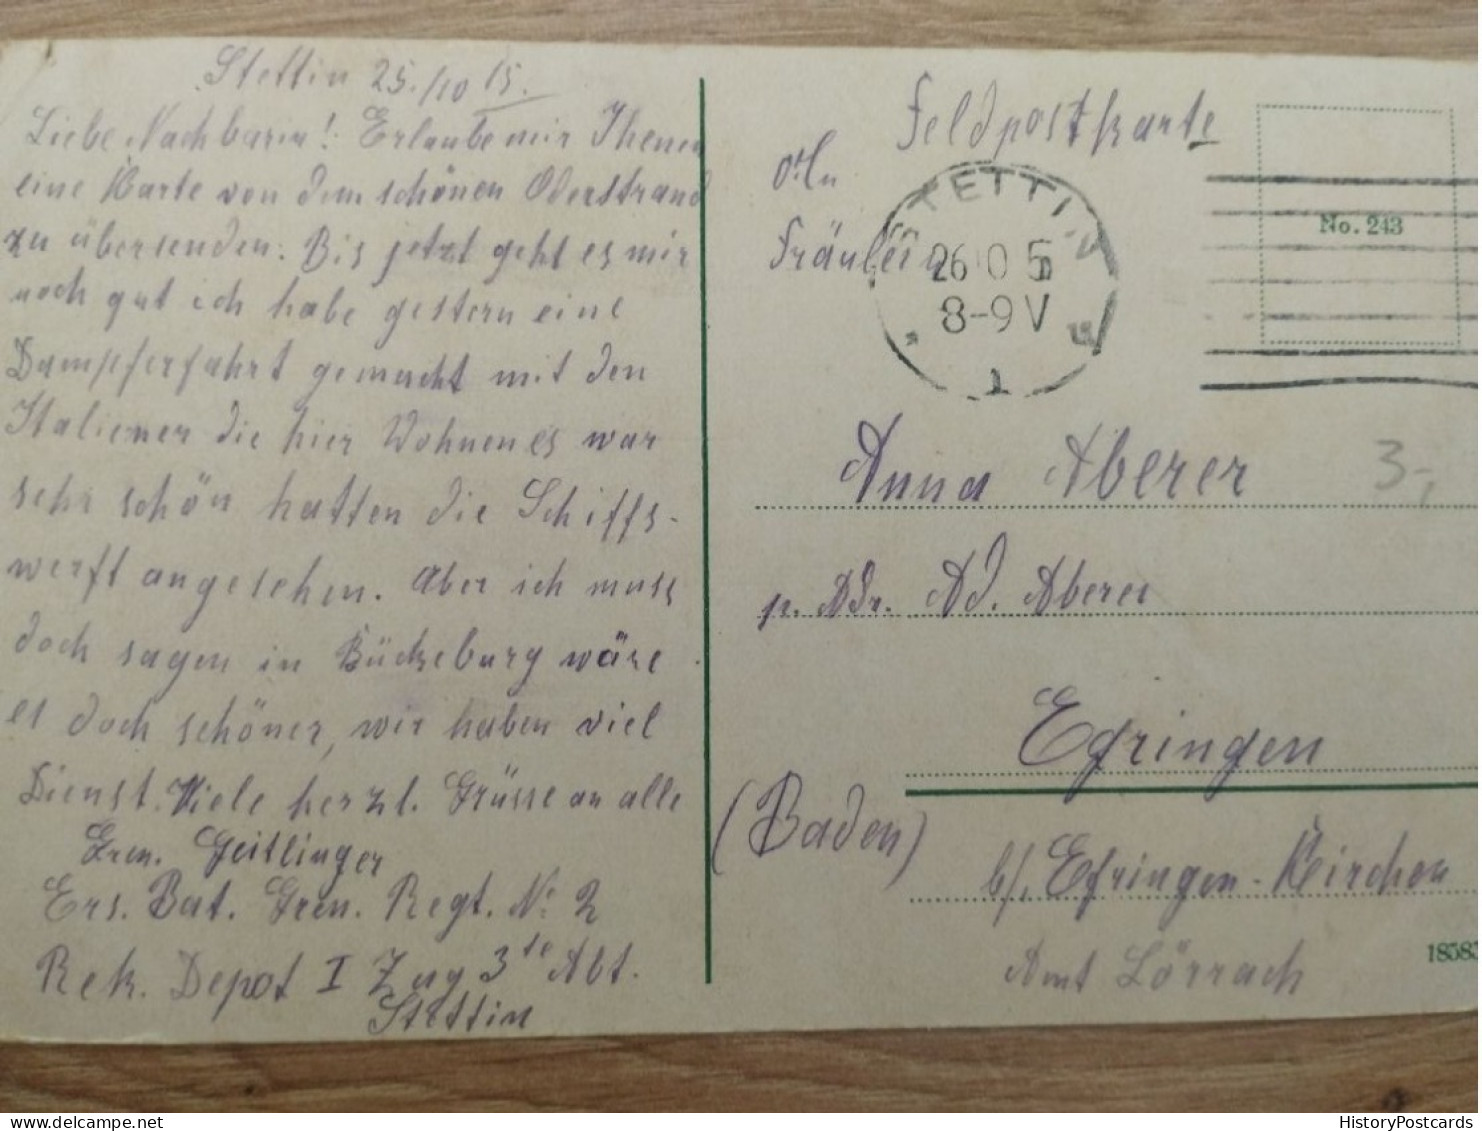 Stettin 25./10 15.
Liebe Nachbarin! Erlaube mir Ihnen
eine Karte von dem schönen Oderstrand
zu übersenden. Bis jetzt geht es mir
noch gut ich habe gestern eine
Dampferfahrt gemacht mit den
Italiener die hier Wohnen es war
sehr schön hatten die Schiffs-
werft angesehen. Aber ich muss
doch sagen in Bückeburg wäre
es doch schöner, wir haben viel
Dienst. Viele herzl. Grüsse an alle
Gren. Geitlinger
Ers. Bat. Gren. Regt. No 2
Rek. Depot I Zug 3te Abt.
Stettin
Feldpostkarte
An
Fräulein
STETTIN
26 10 5
8-9 V
1
No. 243
Anna Aberer
3,-
p. Adr. Ad. Aberer
Efringen
(Baden)
b/. Efringen-Kirchen
Amt Lörrach
18583
HistoryPostcards.com